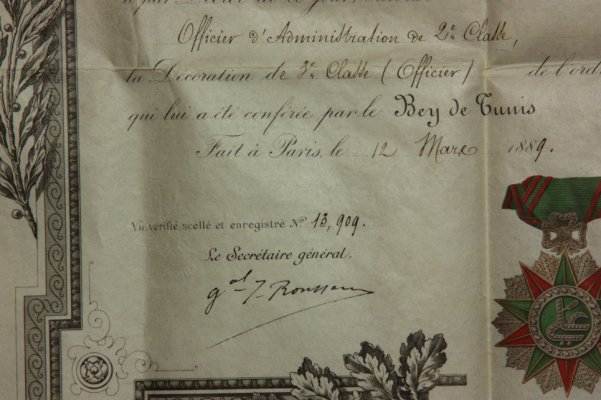 Officier d'Administration de 2e Classe,
la Décoration de 3e Classe (Officier) de l'ord
qui lui a été conférée par le Bey de Tunis
Fait à Paris, le 12 Mars 1889.
Vu, vérifié, scellé et enregistré No 13,909.
Le Secrétaire général.
gal